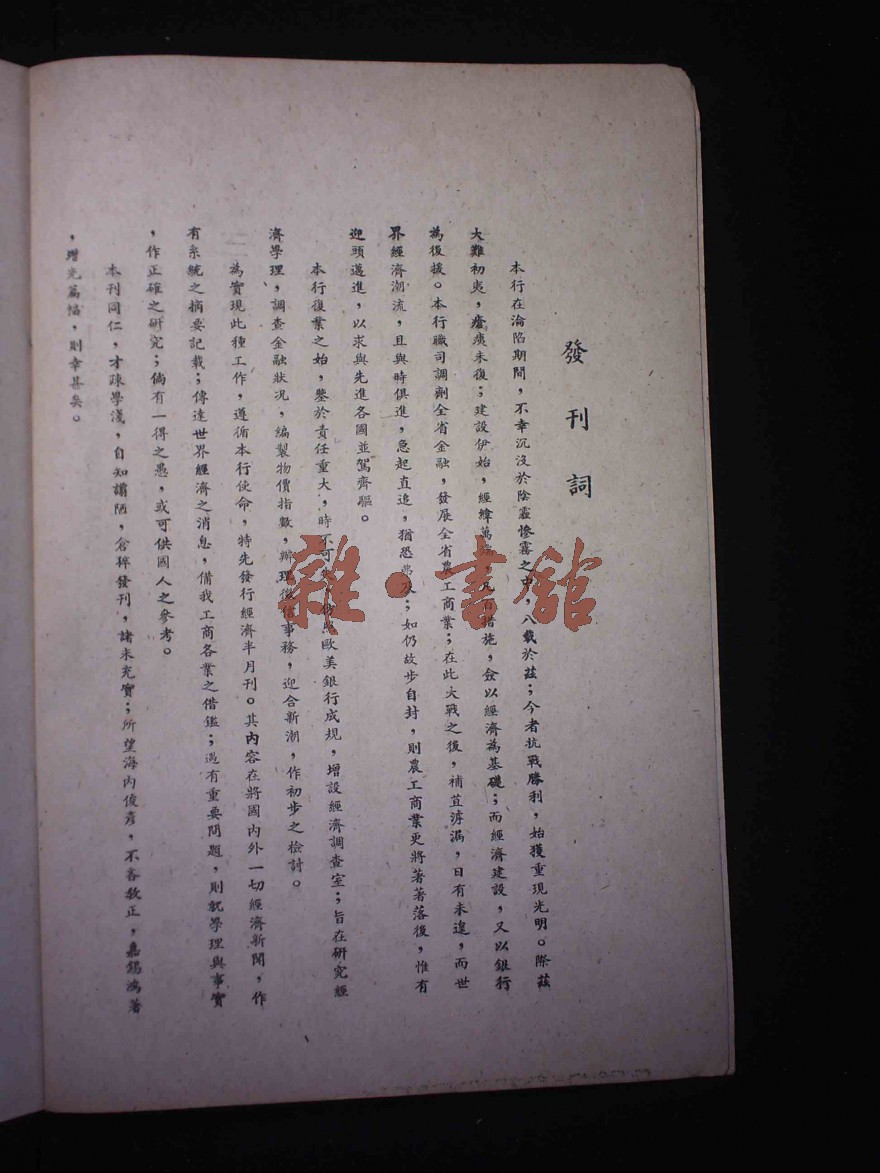 發刊詞
本行在淪陷期間，不幸沉沒於陰霾慘霧之中，八載於茲；今者抗戰勝利，始獲重現光明。際茲
大難初夷，瘡痍未復；建設伊始，經緯萬端，凡百措施，僉以經濟為基礎；而經濟建設，又以銀行
為後援。本行職司調劑全省金融，發展全省農工商業；在此大戰之後，補苴罅漏，日有未遑，而世
界經濟潮流，且與時俱進，急起直追，猶恐弗及；如仍故步自封，則農工商業更將著著落後，惟有
迎頭邁進，以求與先進各國並駕齊驅。
本行復業之始，鑒於責任重大，時不可失，仿照歐美銀行成規，增設經濟調查室；旨在研究經
濟學理，調查金融狀況，編製物價指數，辦理徵信事務，迎合新潮，作初步之檢討。
為實現此種工作，遵循本行使命，特先發行經濟半月刊。其內容在將國內外一切經濟新聞，作
有系統之摘要記載；傳達世界經濟之消息，備我工商各業之借鑑；遇有重要問題，則就學理與事實
，作正確之研究；倘有一得之愚，或可供國人之參考。
本刊同仁，才疎學淺，自知謭陋，倉猝發刊，諸未充實；所望海內俊彥，不吝教正，嘉錫鴻著
，增光篇幅，則幸甚矣。
雜·書館